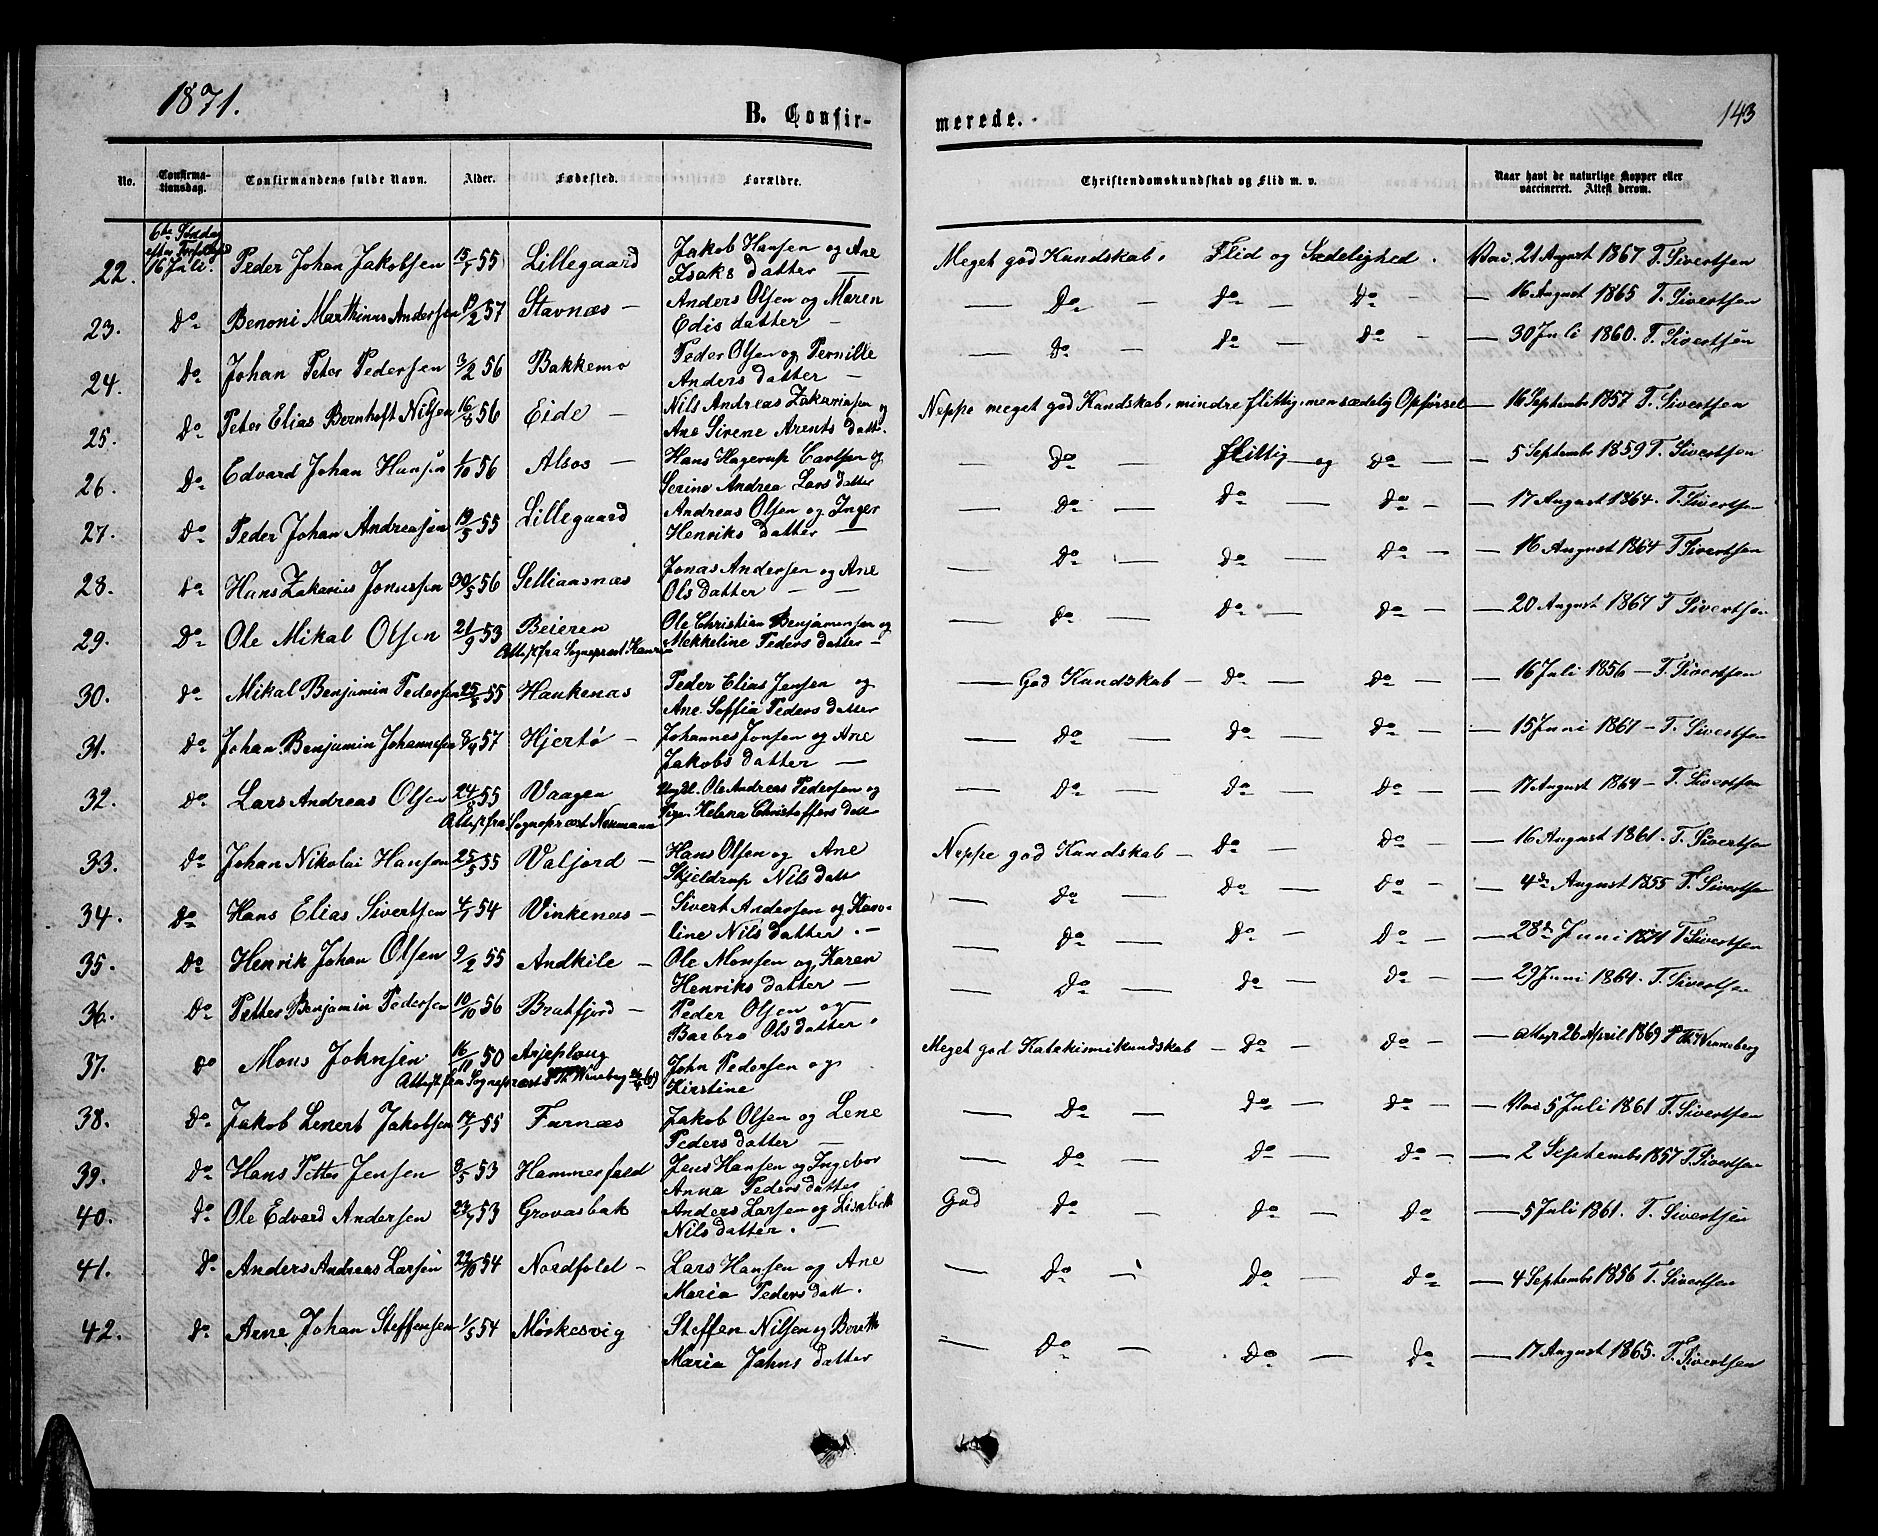 1871.
B. Confir-
merede.
143
No.
Confirma-
tionsdag.
Confirmandens fulde Navn.
Alder.
Fødested.
Forældre.
Christendomskundskab og Flid m. v.
Naar havt de naturlige Kopper eller
vaccineret. Attest derom.
6te Søndag
efter Trefoldighed
22. 16 Juli. Peder Johan Jakobsen 15/1 55 Lillegaard Jakob Hansen og Ane
Isaks datter — Meget god Kundskab. Flid og Sædelighed. Vac. 21 August 1867 T. Sivertsen
23. Do Benoni Marthinus Andersen 19/2 57 Stavnæs — Anders Olsen og Maren
Edis datter — — Do — Do — Do — — 16 August 1865 T. Sivertsen
24. Do Johan Peter Pedersen 3/2 56 Bakkemo Peder Olsen og Pernille
Anders datter — — Do — Do — Do — — 30 Juli 1860. T. Sivertsen
25. Do Peter Elias Bernhoft Nilsen 16/8 56 Eide — Nils Andreas Zakariasen og
Ane Sirene Arents datt. Neppe meget god Kundskab, mindre flittig, men sædelig Opførsel — 16 Septembr 1857 T. Sivertsen
26. Do Edvard Johan Hansen 1/10 56 Alsos — Hans Hagerup Carlsen og
Serine Andrea Lars datter — Do — flittig og Do — — 5 Septembr 1859 T. Sivertsen
27. Do Peder Johan Andreasen 19/5 55 Lillegaard Andreas Olsen og Inger
Henriks datter — — Do — Do — Do — — 17 August 1864. T. Sivertsen
28. Do Hans Zakarias Jonassen 30/5 56 Selliaasnæs Jonas Andersen og Ane
Ols datter — — — Do — Do — Do — — 16 August 1864 T Sivertsen
29. Do Ole Mikal Olsen 21/9 53 Beieren Ole Christian Benjaminsen og
Attest fra Sognepræst Hansen Mekkeline Peders datter — — Do — Do — Do — — 20 August 1864 T Sivertsen
30. Do Mikal Benjamin Pedersen 25/8 55 Haukenæs Peder Elias Jensen og
Ane Soffia Peders datter — God Kundskab — Do — Do — — 16 Juli 1856 — T. Sivertsen
31. Do Johan Benjamin Johannesen 8/4 57 Hjertø — Johannes Jonsen og Ane
Jakobs datter — — Do — Do — Do — — 15 Juni 1861 — T. Sivertsen
32. Do Lars Andreas Olsen 24/8 55 Vaagen Ungdl. Ole Andreas Pedersen og
Attest fra Sognepræst Normann Pige. Helena Christoffers datt — Do — Do — Do — — 17 August 1864 — T. Sivertsen
33. Do Johan Nikolai Hansen 25/5 55 Valjord — Hans Olsen og Ane
Skjeldrup Nils datt Neppe god Kundskab — Do — Do — — 16 August 1861. T. Sivertsen
34. Do Hans Elias Sivertsen 4/1 54 Vinkenæs — Sivert Andersen og Karo-
line Nils datter. — — Do — Do — Do — — 4de August 1855 T. Sivertsen
35. Do Henrik Johan Olsen 9/2 55 Andkile — Ole Monsen og Karen
Henriks datter — — Do — Do — Do — — 28de Juni 1871 T Sivertsen
36. Do Petter Benjamin Pedersen 10/10 56 Bratfjord — Peder Olsen og
Barbro Ols datter. — Do — Do — Do — — 29 Juni 1864. T. Sivertsen
37. Do Mons Johnsen 16/11 50 Arjeploug John Pedersen og
Attest fra Sognepræst P Th Wineberg 26/4 69 Kirstine Meget god Katekismikundskab — Do — Do — — Attest 26 April 1869 P Th Winneberg
38. Do Jakob Lenert Jakobsen 14/1 55 Furnæs Jakob Olsen og Lene
Peders datter — — Do — Do — Do — — Vac 5 Juli 1861 T. Sivertsen
39. Do Hans Petter Jensen 9/5 53 Hammerfald Jens Hansen og Ingebor
Anna Peders datter — Do — Do — Do — — 2 September 1857 T. Sivertsen
40. Do Ole Edvard Andersen 23/7 53 Grovasbak Anders Larsen og Lisabeth
Nils datter. — God Do — Do — Do — 5 Juli 1861. T. Sivertsen
41. Do Anders Andreas Larsen 22/10 54 Nordfold — Lars Hansen og Ane
Maria Peders datt. — Do — Do — Do — 4 Septembr 1856 T. Sivertsen
42. Do Arne Johan Steffensen 1/5 54 Mørkesvig Steffen Nilsen og Bereth
Maria Jahns datter — Do — Do — Do — 17 August 1865. T. Sivertsen